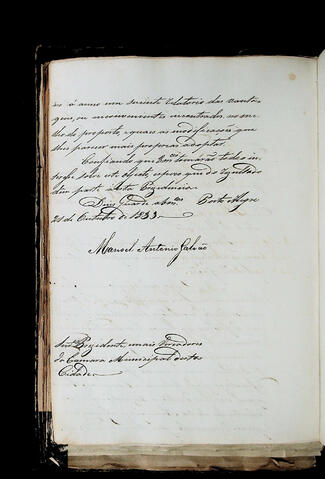 o anno um succinto relatorio das vanta-
gens, ou inconvenientes encontrados no me-
thodo proposto, e quaes as modificações que
lhes parecer mais proprias adoptar.
Confiando que tomarão todo o in-
teresse sobre este objecto, espero que do resultado
dem parte a esta Prezidencia.
Deos Guarde a Porto Alegre
de Outubro de 1833.
Manoel Antonio Galvão
Prezidente, e mais Vereadores
da Camara Municipal desta
Cidade